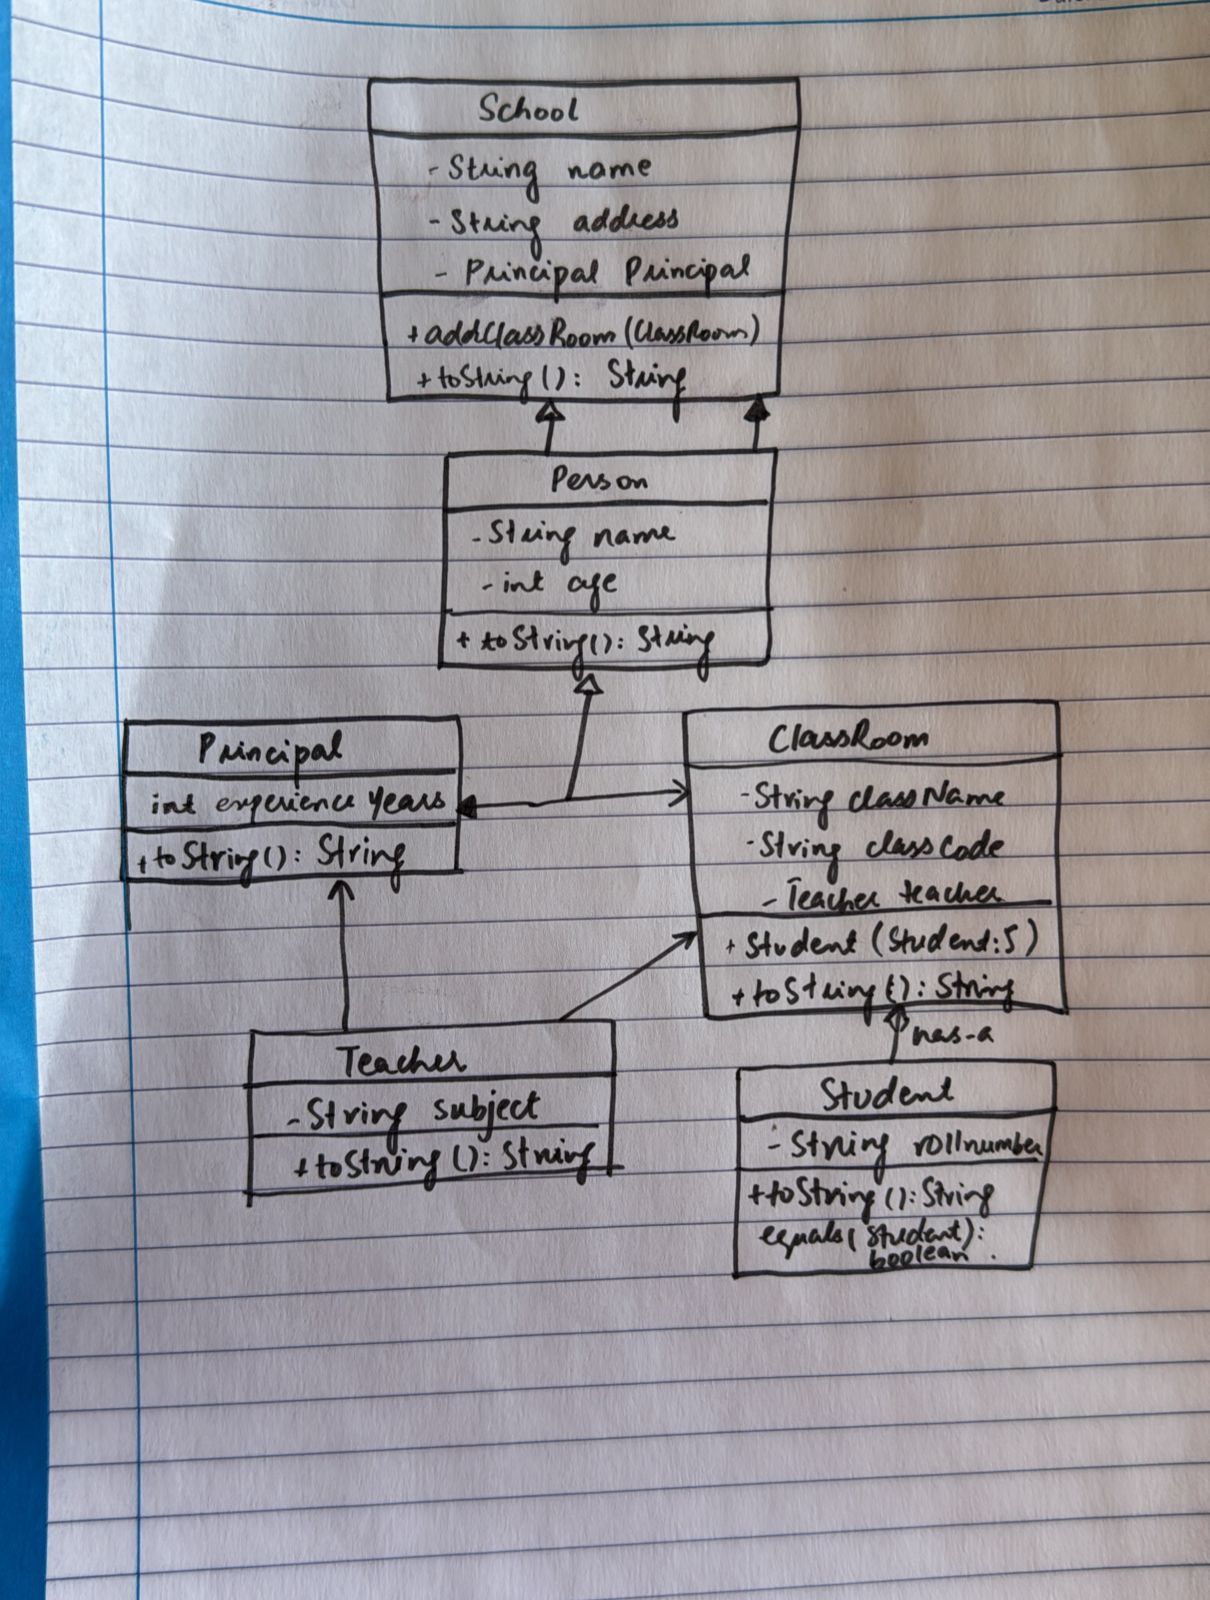 School
- String name
- String address
- Principal Principal
+ addClassRoom (ClassRoom)
+ toString (): String
Person
- String name
- int age
+ toString(): String
Principal
int experience years
+ toString(): String
ClassRoom
- String className
- String classCode
- Teacher teacher
+ Student (Student:S)
+ toString (): String
has-a
Teacher
- String subject
+ toString (): String
Student
- String rollnumber
+ toString (): String
equals( Student):
boolean .